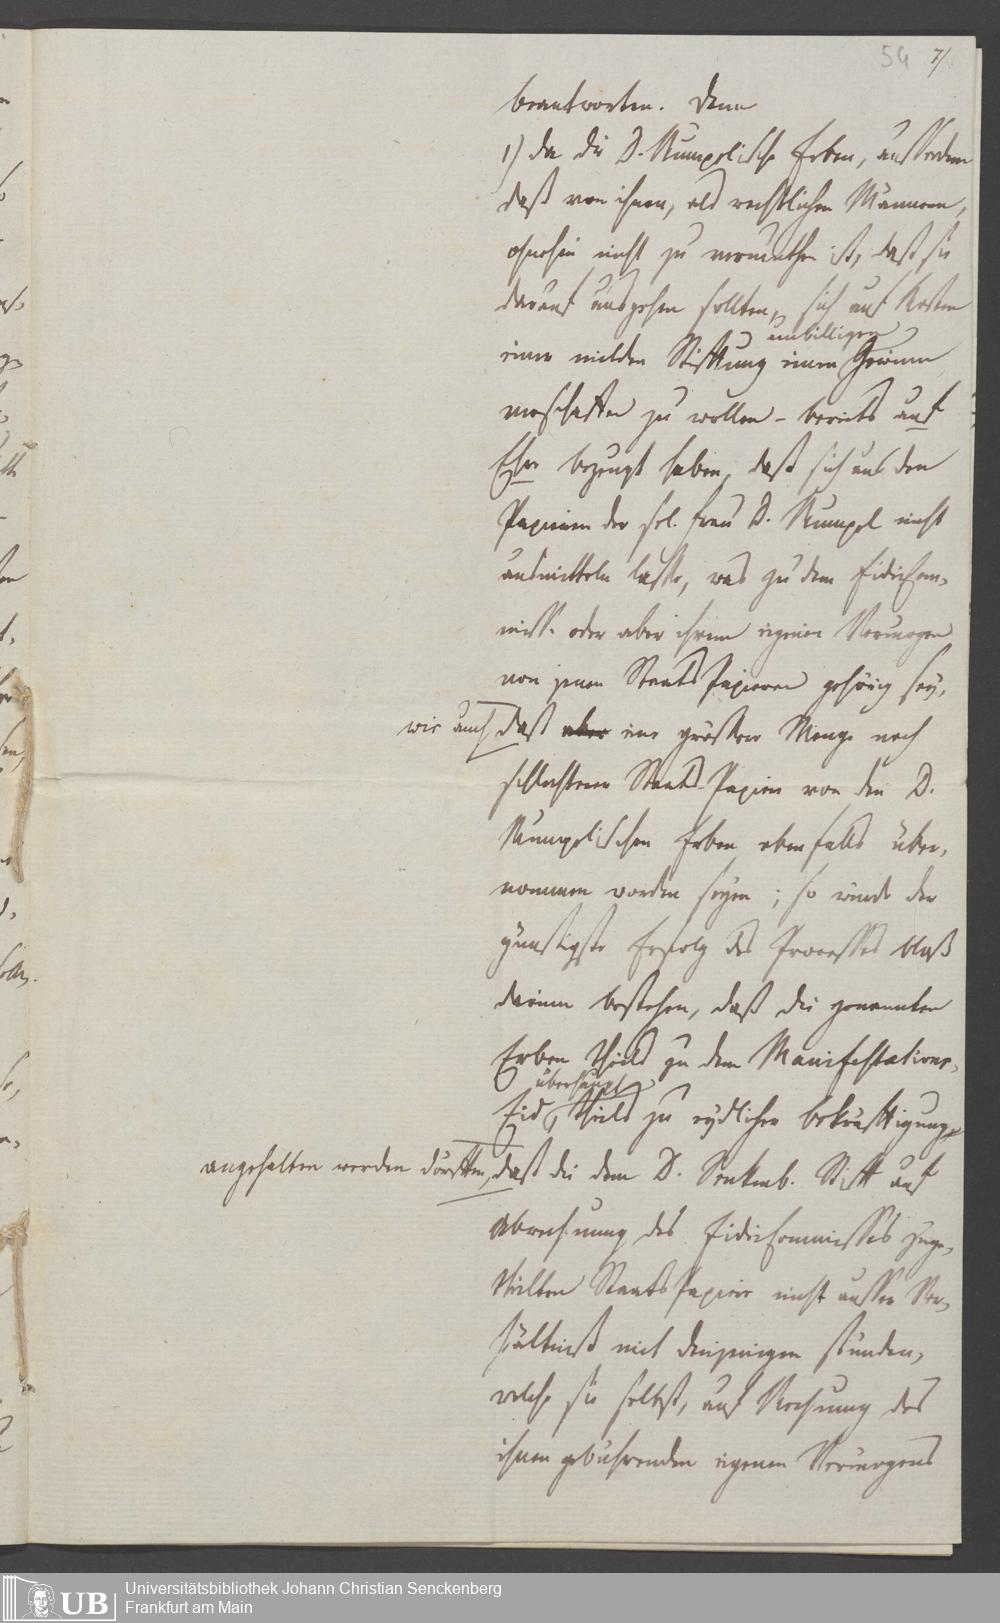 54 7/
beantworten. Denn
1) da die D. Rumpelische Erben, ausserdem
daß von ihnen, als rechtlichen Männern,
ohnehin nicht zu vermuthen ist, daß sie
darauf ausgehen sollten, sich auf Kosten
einer milden Stifftung einen unbilligen Gewinn
verschaffen zu wollen - bereits auf
Ehre bezeugt haben, daß sich aus den
Papieren der sel. Frau D. Rumpel nicht
ausmitteln lasse, was zu dem Fideicom-
miss. oder aber ihrem eigenen Vermögen
von jenen Staats Papieren gehörig sey,
wie auch, daß aber eine grössere Menge noch
schlechterer Staats-Papiere von den D.
Rumpelischen Erben ebenfalls über-
nommen worden seyen; so würde der
günstigste Erfolg des Processes blos
darinn bestehen, daß die genannten
Erben theils zu dem Manifestations-
Eid überhaupt, theils zu eydlicher Bekräfftigung
angehalten werden dörfften, daß die dem D. Senkenb. Stift auf
Abrechnung des Fideicommisses zuge-
theilten Staats Papiere nicht ausser Ver-
hältniß mit denjenigen stünden,
welche sie selbst, auf Rechnung des
ihnen gebührenden eigenen Vermögens
UB
Universitätsbibliothek Johann Christian Senckenberg
Frankfurt am Main